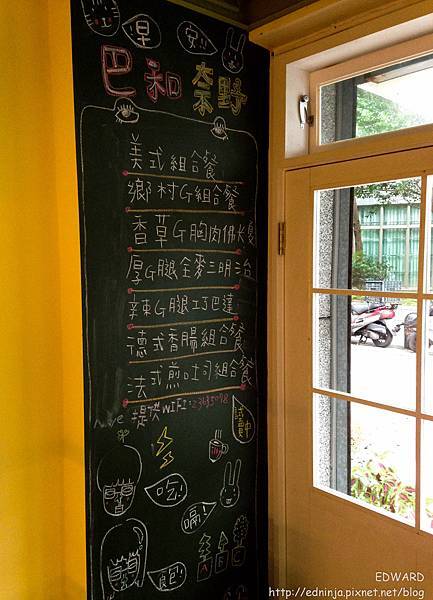 捏 安!!
巴和奈野
美式組合餐
鄉村G組合餐
香草G胸肉佛卡夏
厚G腿全麥三明治
辣G腿巧巴達
德式香腸組合餐
法式煎吐司組合餐
提供WIFI:23635098
試賣中
吃!
嗝!
飽
EDWARD
http://edninja.pixnet.net/blog